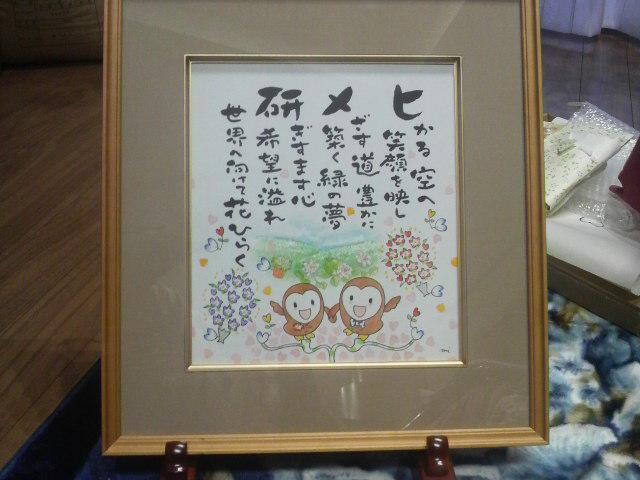 ヒかる空へ
笑顔を映し
メざす道豊かに
築く緑の夢
研ぎすます心
希望に溢れ
世界へ向けて花ひらく